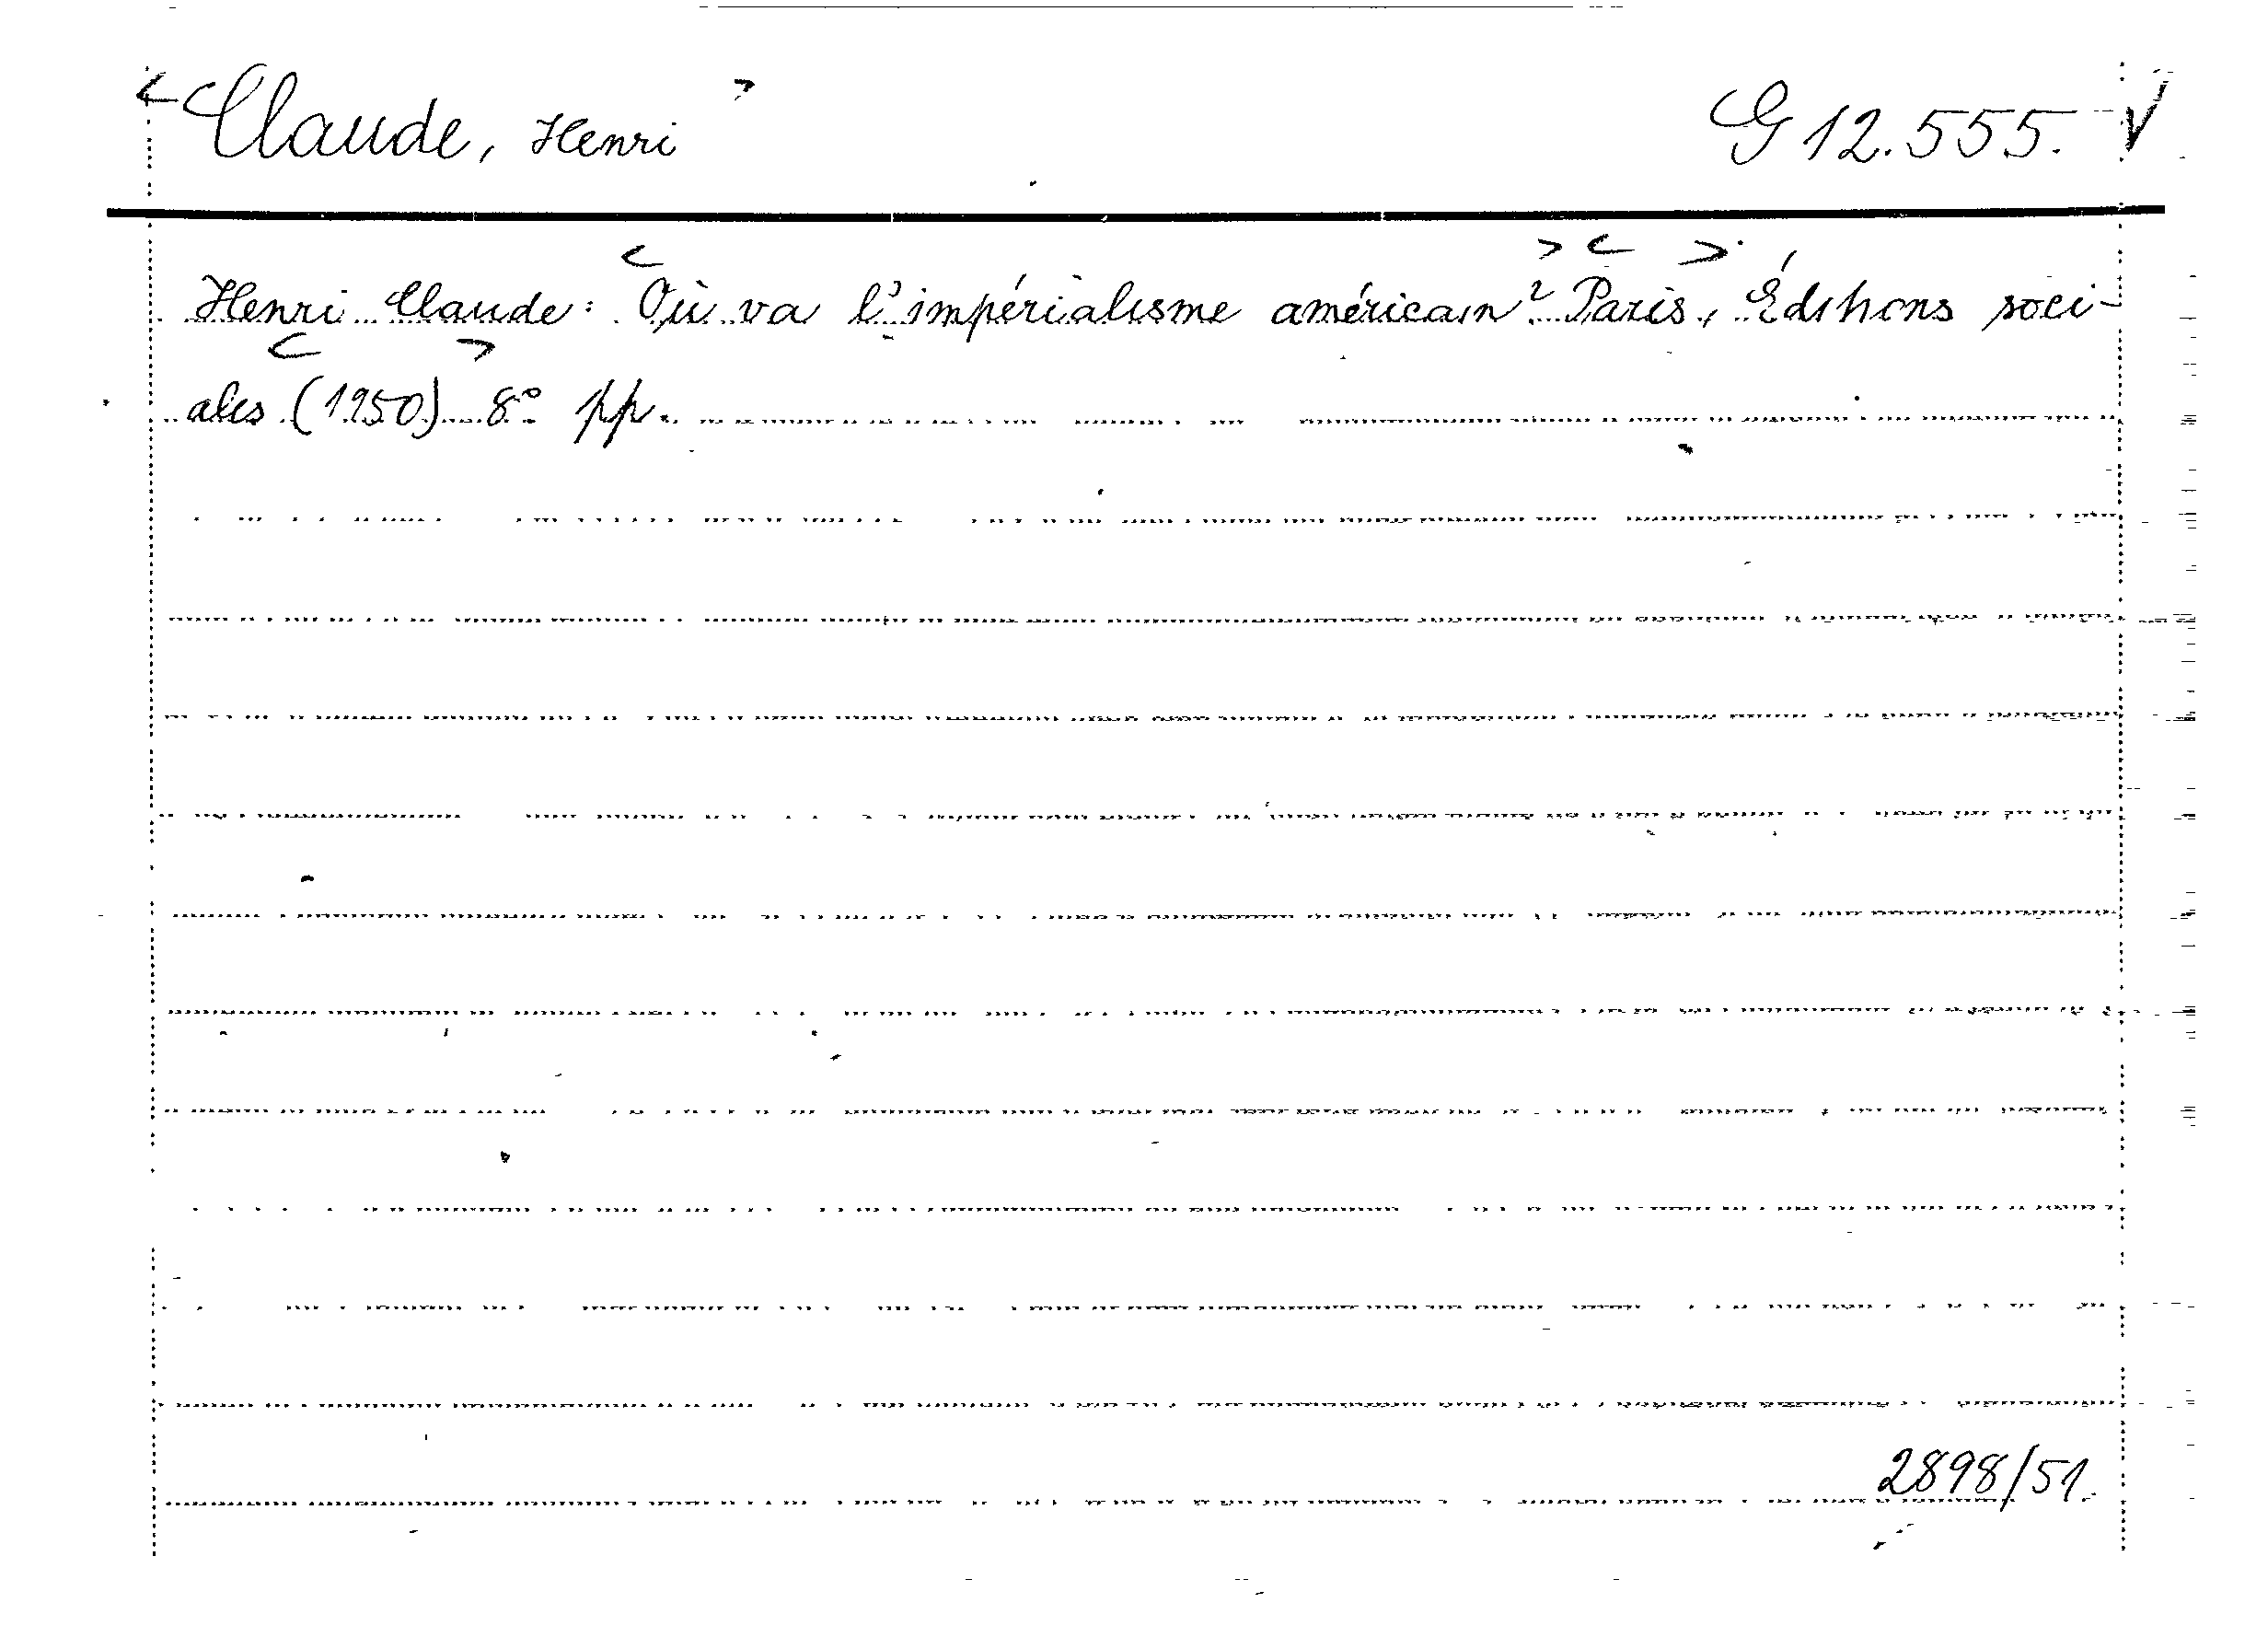 <Claude, Henri> G 12.555. V
Henri Claude: <Où va l'impérialisme américain?> <Paris>, Éditions soci-
ales <(1950)> 8° pp.
2898/51.